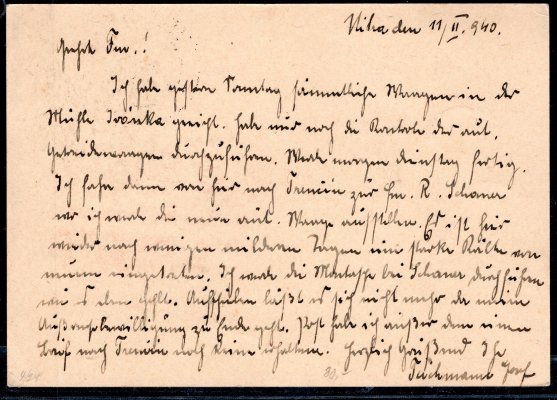 Nitra den 11/II. 940.
Geehrte Fa.!
Ich habe gestern Sonntag sämmtliche Waagen in der
Mühle geeicht. Habe nur noch die Kontrole der aut.
Getreidewaagen durchzuführen. Werde morgen Dienstag fertig.
Ich fahre dann von hier nach Trencin zur Fa. R. Schaner
wo ich werde die neue aut. Waage aufstellen. Es ist hier
wieder nach wenigen milderen Tagen eine starke Kälte von
neuem eingetreten. Ich werde die Montasche bei Schaner durchführen
wie es eben geht. Aufschieben läßt es sich nicht mehr da meine
Ausreisebewilligung zu Ende geht. Post habe ich außer dem einen
Brief nach Trencin noch keine erhalten. Herzlich Grüßend Ihr
Tuchmann Josef
80.-